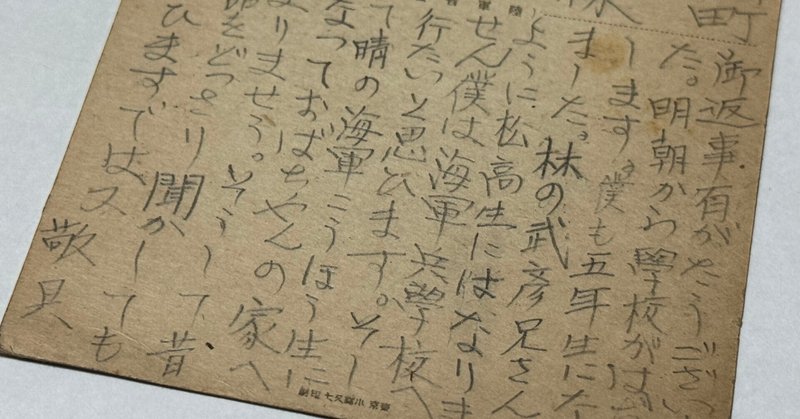 町
陸軍省
御返事有がたうござい
た。明朝から學校がは
します。僕も五年生にな
ました。林の武彦兄さん
ように松高生にはなりま
せん僕は海軍兵學校へ
行たいと思ひます。そし
て晴の海軍こうほう生に
なっておばちやんの家へ
よりませう。そうして昔
をどっさり聞かしても
ひますでは又
敬具